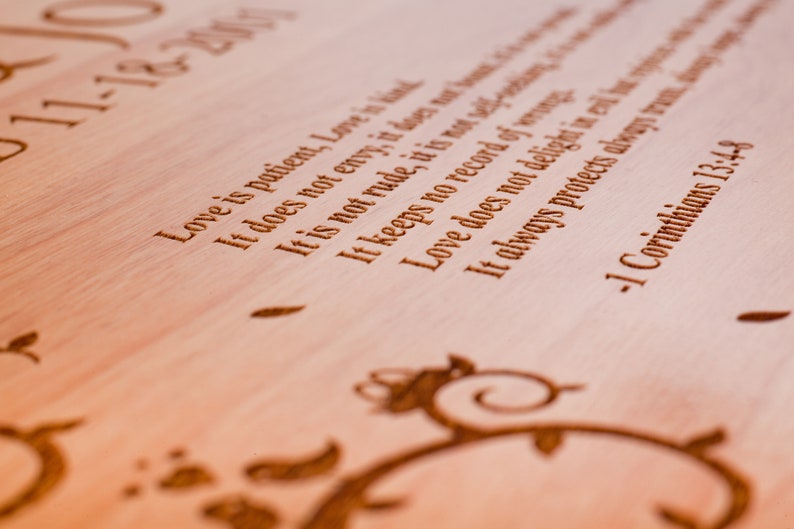 JO
11-18-2001
Love is patient, Love is kind.
It does not envy, it does not boast, it is not proud.
It is not rude, it is not self-seeking, it is not
It keeps no record of wrongs.
Love does not delight in evil but rejoices
It always protects always trusts, always hopes,
-1 Corinthians 13:4-8